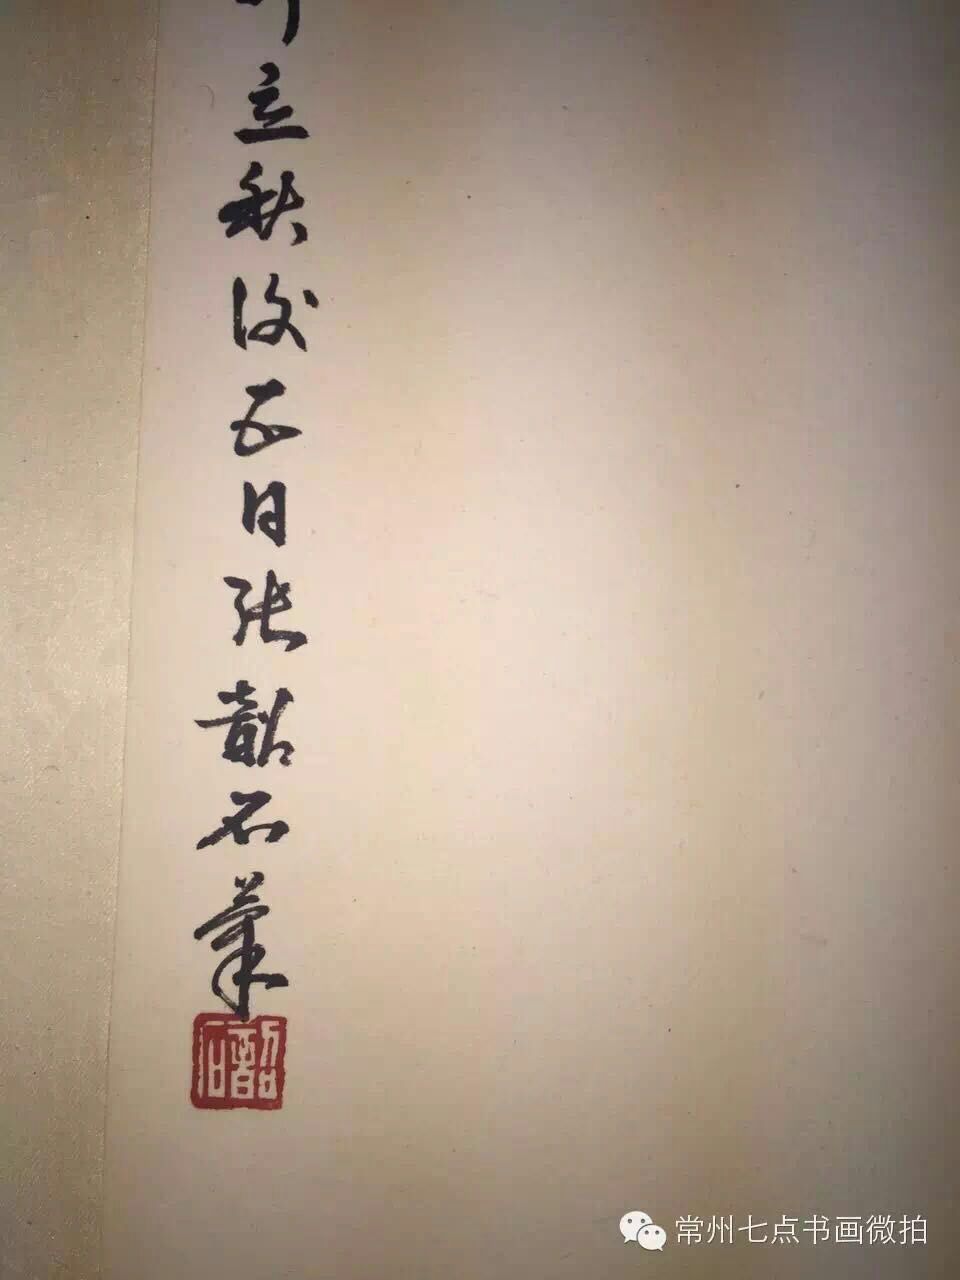 立秋後五日張韶石筆
韶石
常州七点书画微拍